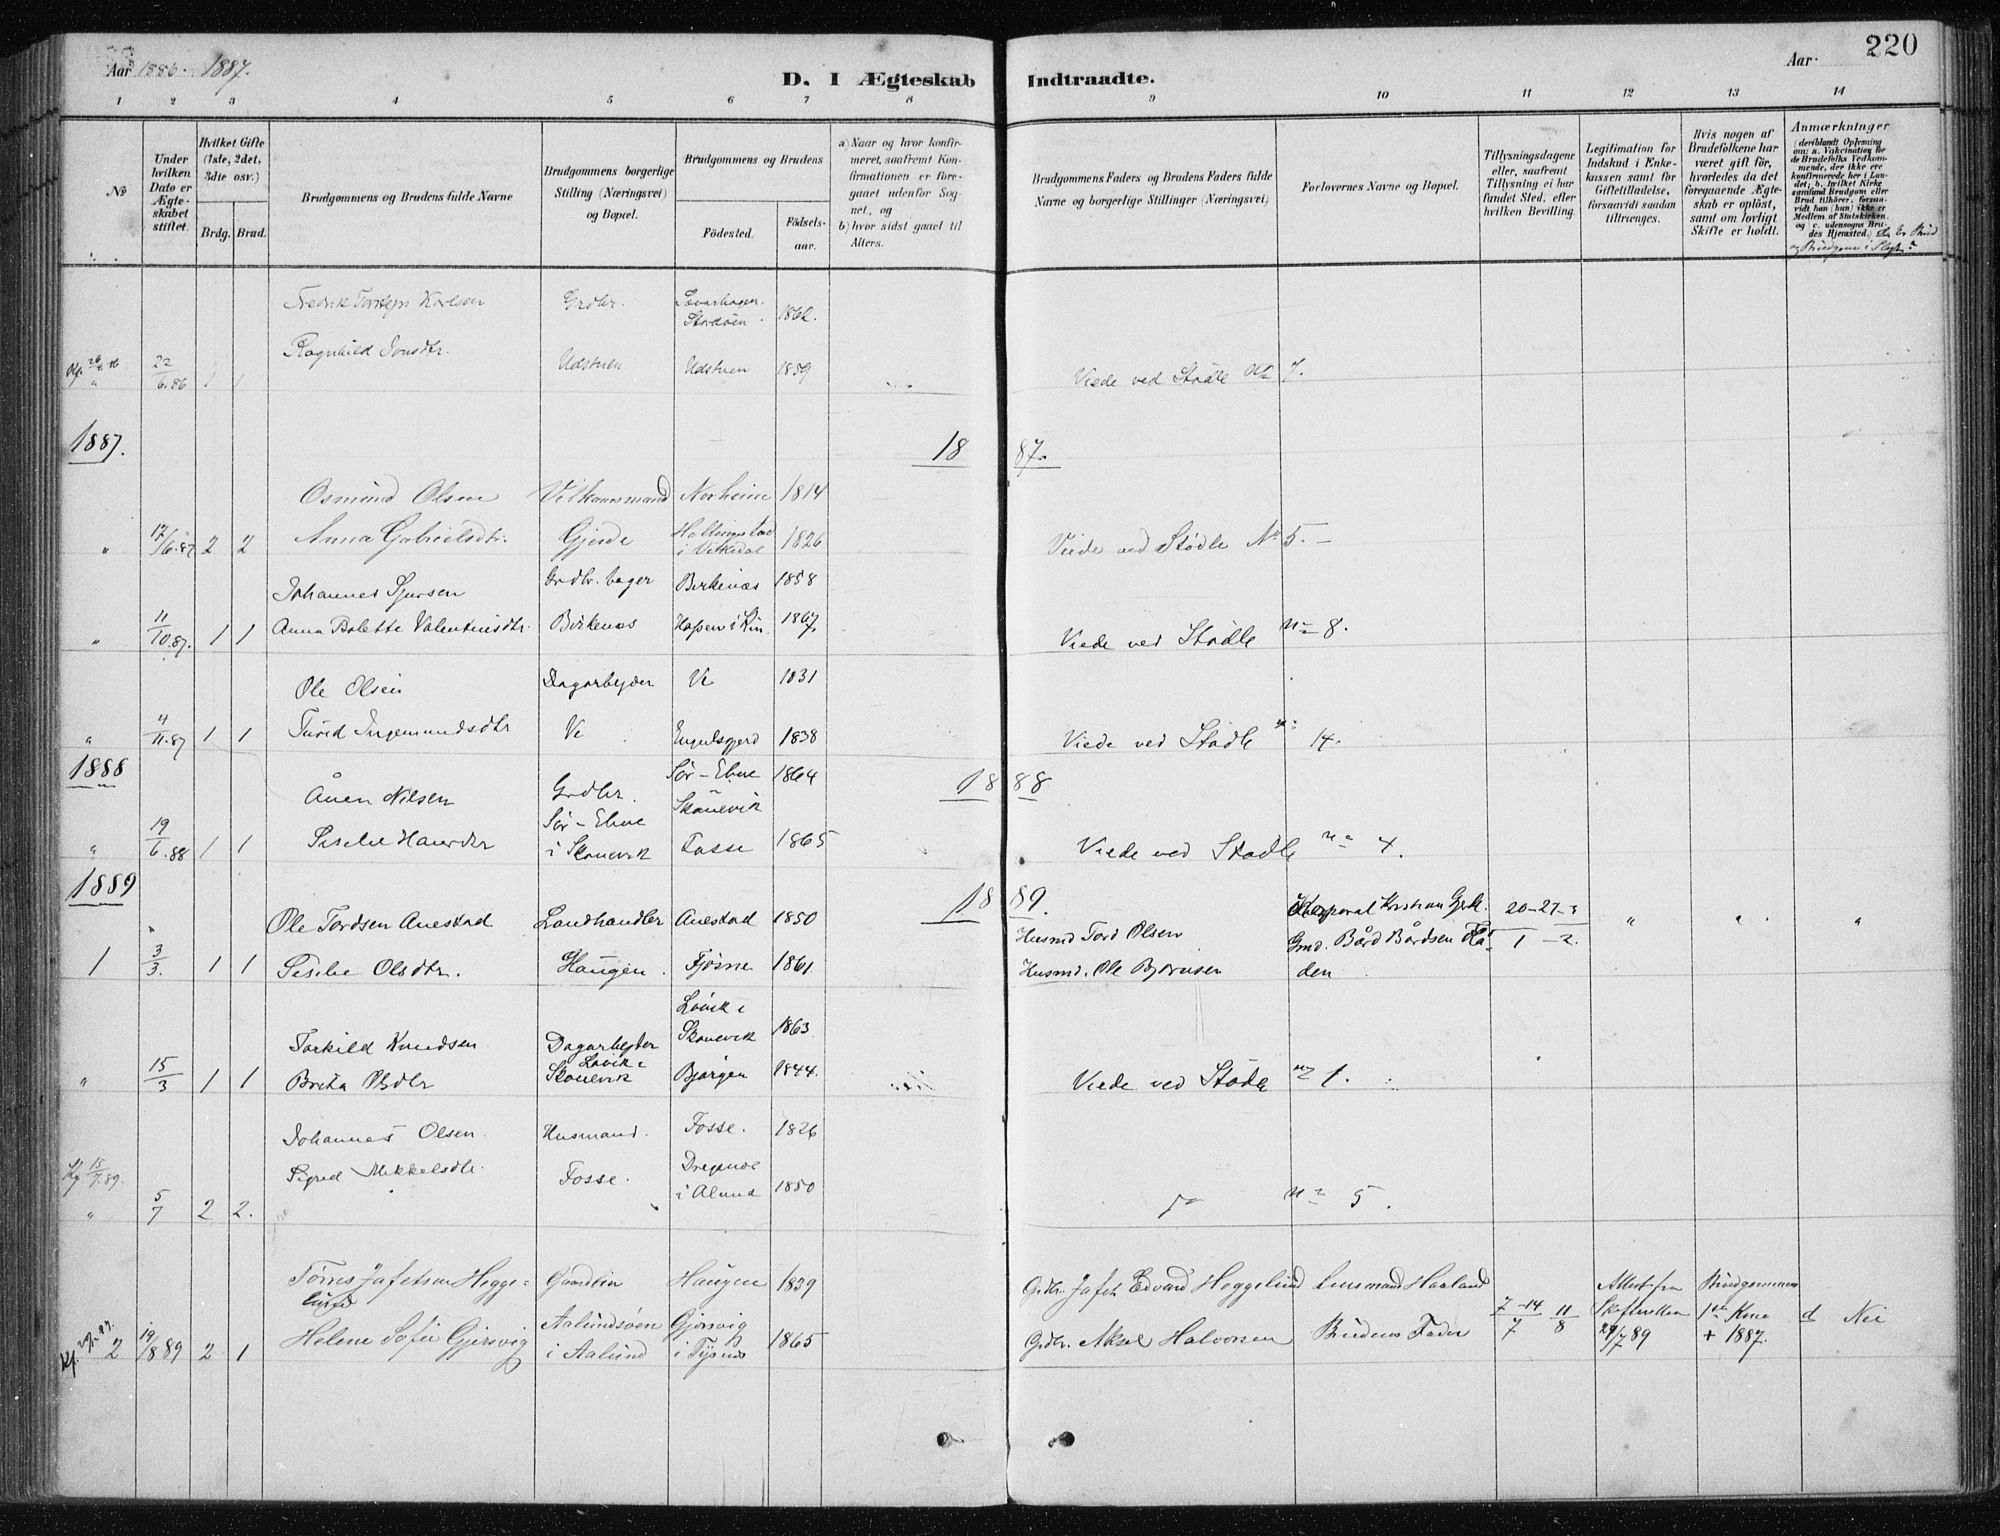 Aar 1886-1887.
D. I Ægteskab Indtraadte.
Aar
220
1 2 3 4 5 6 7 8 9 10 11 12 13 14
No
Under hvilken Dato er Ægteskabet stiftet.
Hvilket Gifte (1ste, 2det, 3die osv.)
Brdg. Brud.
Brudgommens og Brudens fulde Navne
Brudgommens borgerlige Stilling (Næringsvei) og Bopæl.
Brudgommens og Brudens
Fødested. Fødselsaar.
a) Naar og hvor konfirmeret, saafremt Konfirmationen er foregaaet udenfor Sognet, og
b) hvor sidst gaaet til Alters.
Brudgommens Faders og Brudens Faders fulde Navne og borgerlige Stillinger (Næringsvei)
Forlovernes Navne og Bopæl.
Tillysningsdagene eller, saafremt Tillysning ei har fundet Sted, efter hvilken Bevilling.
Legitimation for Indskud i Enkekassen samt for Giftetilladelse, forsaavidt saadan tiltrænges.
Hvis nogen af Brudefolkene har været gift før, hvorledes da det foregaaende Ægteskab er opløst, samt om lovligt Skifte er holdt.
Anmærkninger (deriblandt Oplysning om: a. Vakcination for de Brudefolks Vedkommende, der ikke ere konfirmerede her i Landet; b. hvilket Kirkesamfund Brudgom eller Brud tilhører, forsaavidt han (hun) ikke er Medlem af Statskirken, og c. udensogns Brudes Hjemsted.) d. Er Brud og Brudgom i Slegt?
Fredrik Torstejn Karlsen Grdbr. Sævarhagen Stordøen 1862.
" 22/6.86 1 1 Ragnhild Jonsdtr. Udstuen Udstuen 1859 Viede ved Stødle No 7.
1887. 1887.
Osmund Olsen Vilkaarsmand Norheim 1814
" 17/6.87 2 2 Anna Gabrielsdtr. Gjerde i Vikedal 1826 Viede ved Stødle No 5.-
Johannes Sjursen Grdbr. bager Birkenæs 1858
" 11/10.87. 1 1 Anna Bolette Valentinsdtr. Birkenæs 1867. Viede ved Stødle no 8.
Ole Olsen Dagarbejder Ve 1831
" 4/11.87 1 1 Turid Ingemundsdtr Ve Engelsgjerd 1838 Viede ved Stødle no 14.
1888 1888
Ånen Nilsen Grdbr. Sør-Elne Skonevik 1864
" 19/6.88 1 1 Siselie Hansdtr Sør-Elne i Skonevik Fosse 1865 Viede ved Stødle no 4.
1889 1889.
Ole Tordsen Anestad Landhandler Anestad 1850 Husmd Tord Olsen Korporal Kristian Gjerd. 20-27-3
1 3/3. 1 1 Siselie Olsdtr. Haugen. Fjøsne 1861 Husmd. Ole Bjørnsen Grmd. Bård Bårdsen Flåden 1 -2. " " "
Torkild Knudsen Dagarbejder Løvik i Skonevik 1863
" 15/3 1 1 Brita Olsdtr Løvik i Skonevik Bjørgen 1844. Viede ved Stødle no 1.
Johannes Olsen. Husmand. Fosse. 1826
Kf 15/7.89.
" 5/7 2 2. Sigrid Mikkelsdtr. Fosse. i Ølund 1850 no 5.
Tørres Jafetsen Heggelund Gaardbr Haugen 1839 Grdbr. Jafet Edvard Heggelund Lensmand Haaland 7-14/7 11/8 Attest fra Skifteretten 29/7 89 Brudgommens 1ste Kone + 1887. d Nei
2 19/8 89 2 1 Helene Sofie Gjersvig Aalundsøen i Aalund Gjersvig i Tysnes 1865 Grdbr. Aksel Halvorsen Brudens Fader